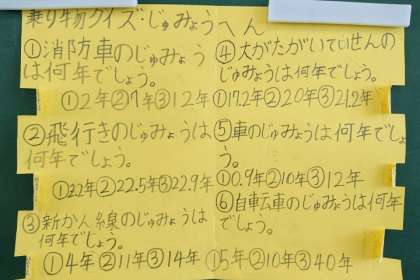 乗り物クイズ:じゅみょうへん
①消防車のじゅみょう
は何年でしょう。
①2年②7年③12年
②飛行きのじゅみょうは
何年でしょう。
①22年②22.5年③22.9年
③新かん線のじゅみょうは
何年でしょう。
①4年②11年③14年
④大がたがいていせんの
じゅみょうは何年でしょう。
①17.2年②20年③21.2年
⑤車のじゅみょうは何年でしょ
う。
①0.9年②10年③12年
⑥自転車のじゅみょうは何年
でしょう。
①5年②10年③40年